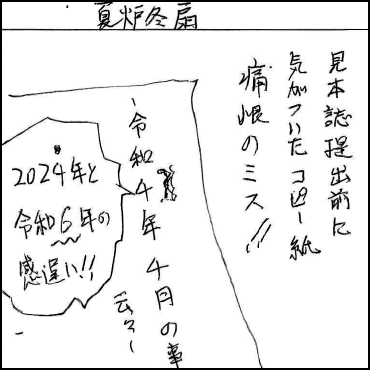 夏炉冬扇
見本誌提出前に
気がついたコピー紙
痛恨のミス!!
~令和4年4月の事
云々~
2024年と
令和6年の
感違い!!